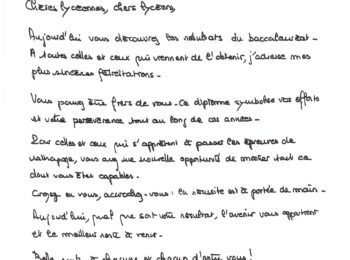 Chères lycéennes, chers lycéens,
Aujourd'hui vous découvrez les résultats du baccalauréat.
A toutes celles et ceux qui viennent de l'obtenir, j'adresse mes
plus sincères félicitations.
Vous pouvez être fiers de vous. Ce diplôme symbolise vos efforts
et votre persévérance tout au long de ces années.
Pour celles et ceux qui s'apprêtent à passer les épreuves de
rattrapage, vous avez une nouvelle opportunité de montrer tout ce
dont vous êtes capables.
Croyez en vous, accrochez-vous : la réussite est à portée de main.
Aujourd'hui, quel que soit votre résultat, l'avenir vous appartient
et le meilleur reste à venir.
Belle suite à chacune et chacun d'entre vous !